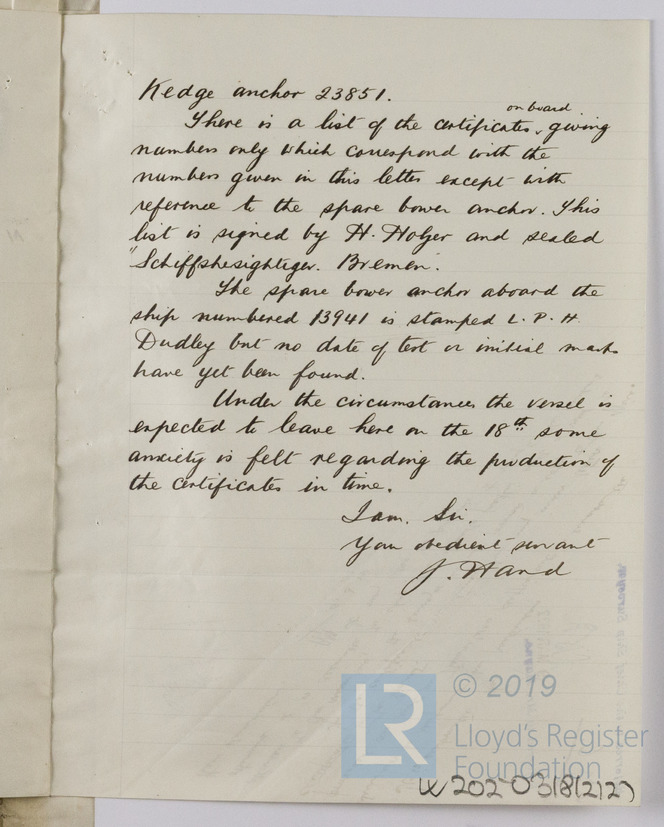 Kedge anchor 23851.
on board
There is a list of the certificates, giving
numbers only which correspond with the
numbers given in this letter except with
reference to the spare bower anchor. This
list is signed by H. Holzer and sealed
"Schiffshesightiger. Bremen".
The spare bower anchor aboard the
ship numbered 13941 is stamped L. P. H.
Dudley but no date of test or initial marks
have yet been found.
Under the circumstances the vessel is
expected to leave here on the 18th some
anxiety is felt regarding the production of
the certificates in time.
I am. Sir.
Your obedient servant
J. Hand
LR
© 2019
Lloyd's Register
Foundation
W202-0318(2/2)